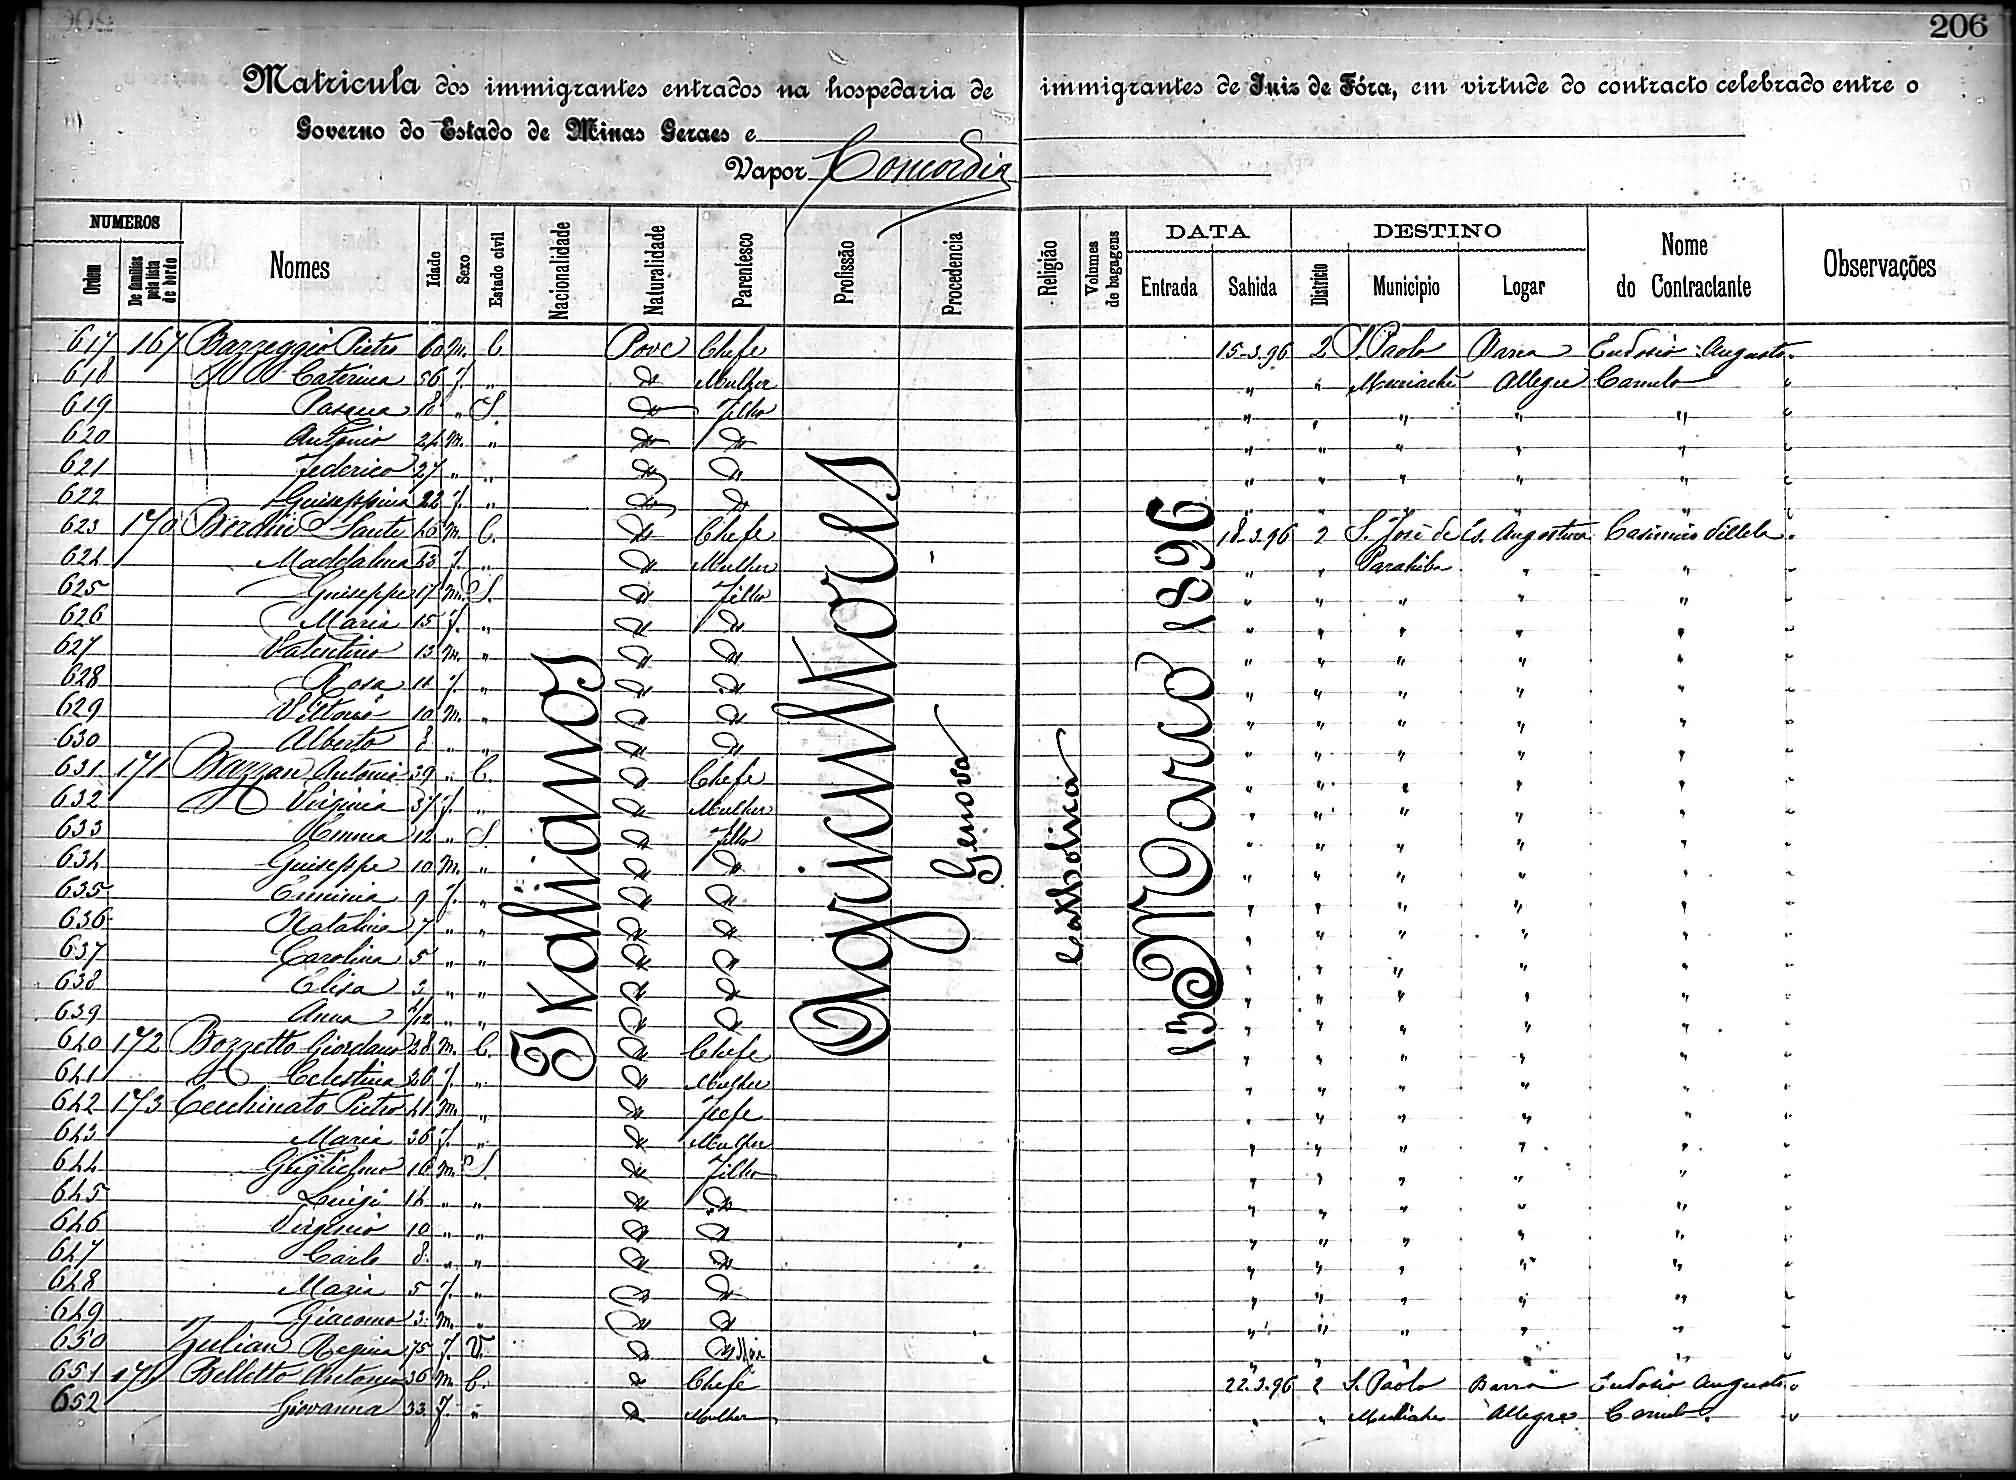 206
Matricula dos immigrantes entrados na hospedaria de immigrantes de Juiz de Fóra, em virtude do contracto celebrado entre o
Governo do Estado de Minas Geraes e
Vapor Concordia
NUMEROS DATA DESTINO
Ordem De familias pela lista de bordo Nomes Idade Sexo Estado civil Nacionalidade Naturalidade Parentesco Profissão Procedencia Religião Volumes de bagagens Entrada Sahida Districto Municipio Logar Nome do Contractante Observações
Italianos
Agricultores
Genova
Catholica
13 Março 1896
617 167 Bazzeggio Pietro 60 m. C Pove Chefe 15-3.96 2 S. Paolo Barra Eudosio Augusto
618 Caterina 56 f. " do Mulher " " Muriaché Allegre Camelo "
619 Pasqua 18 " S do Filho " " " " " "
620 Antonio 24 m. " do do " " " " " "
621 Federico 27 " " do do " " " " " "
622 Guiseppina 22 f. " do do " " " " " "
623 170 Sante 46 m. C. do Chefe 18.3.96 2 S. José de Es. Angostura Casimiro Villela "
624 Maddalena 43 f. " do Mulher " " Parahiba " " "
625 Guiseppe 17 m. S. do Filho " " " " " "
626 Maria 15 f. " do do " " " " " "
627 Valentino 13 m. " do do " " " " " "
628 Rosa 11 f. " do do " " " " " "
629 Vittorio 10 m. " do do " " " " " "
630 Alberto 8 " " do do " " " " " "
631 171 Bazzan Antonio 39 " C. do Chefe " " " " " "
632 Virginia 37 f. " do Mulher " " " " " "
633 Emma 12 " S do Filho " " " " " "
634 Guiseppe 10 m. " do do " " " " " "
635 Erminia 9 f. " do do " " " " " "
636 Natalina 7 " " do do " " " " " "
637 Carolina 5 " " do do " " " " " "
638 Elisa 3 " " do do " " " " " "
639 Anna /12 " " do do " " " " " "
640 172 Bozzetto Giordano 28 m. C. do Chefe " " " " " "
641 Celestina 26 f. " do Mulher " " " " " "
642 173 Cecchinato Pietro 41 m. " do Jefe " " " " " "
643 Maria 36 f. " do Mulher " " " " " "
644 Guglielmo 16 m. S. do Filho " " " " " "
645 Luigi 14 " " do do " " " " " "
646 Virginio 10 " " do do " " " " " "
647 Carlo 8 " " do do " " " " " "
648 Maria 5 f. " do do " " " " " "
649 Giacomo 3 m. " do do " " " " " "
650 Zulian Regina 75 f. V. do Mãi " " " " " "
651 Belletto Antonio 36 m. C. do Chefe 22.3.96 2 S. Paolo Barra Eudosio Augusto "
652 Giovanna 33 f. " do Mulher " " Muriahe Allegre Camelo "